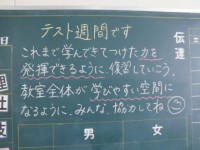 テスト週間です
これまで学んできてつけた力を
発揮できるように、復習していこう。
教室全体が学びやすい空間に
なるように、みんな、協力してね
伝達
日
理
社
男
女